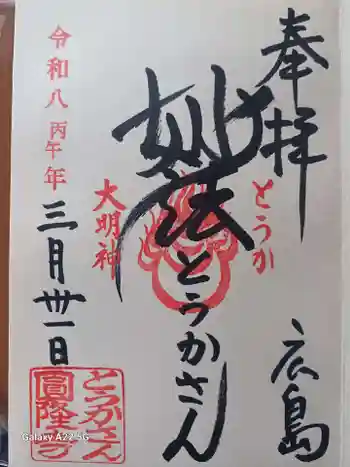 奉拝
広島
とうか
妙法
とうかさん
大明神
令和八丙午年
三月卅一日
とうかさん
圓隆寺
Galaxy A22 5G